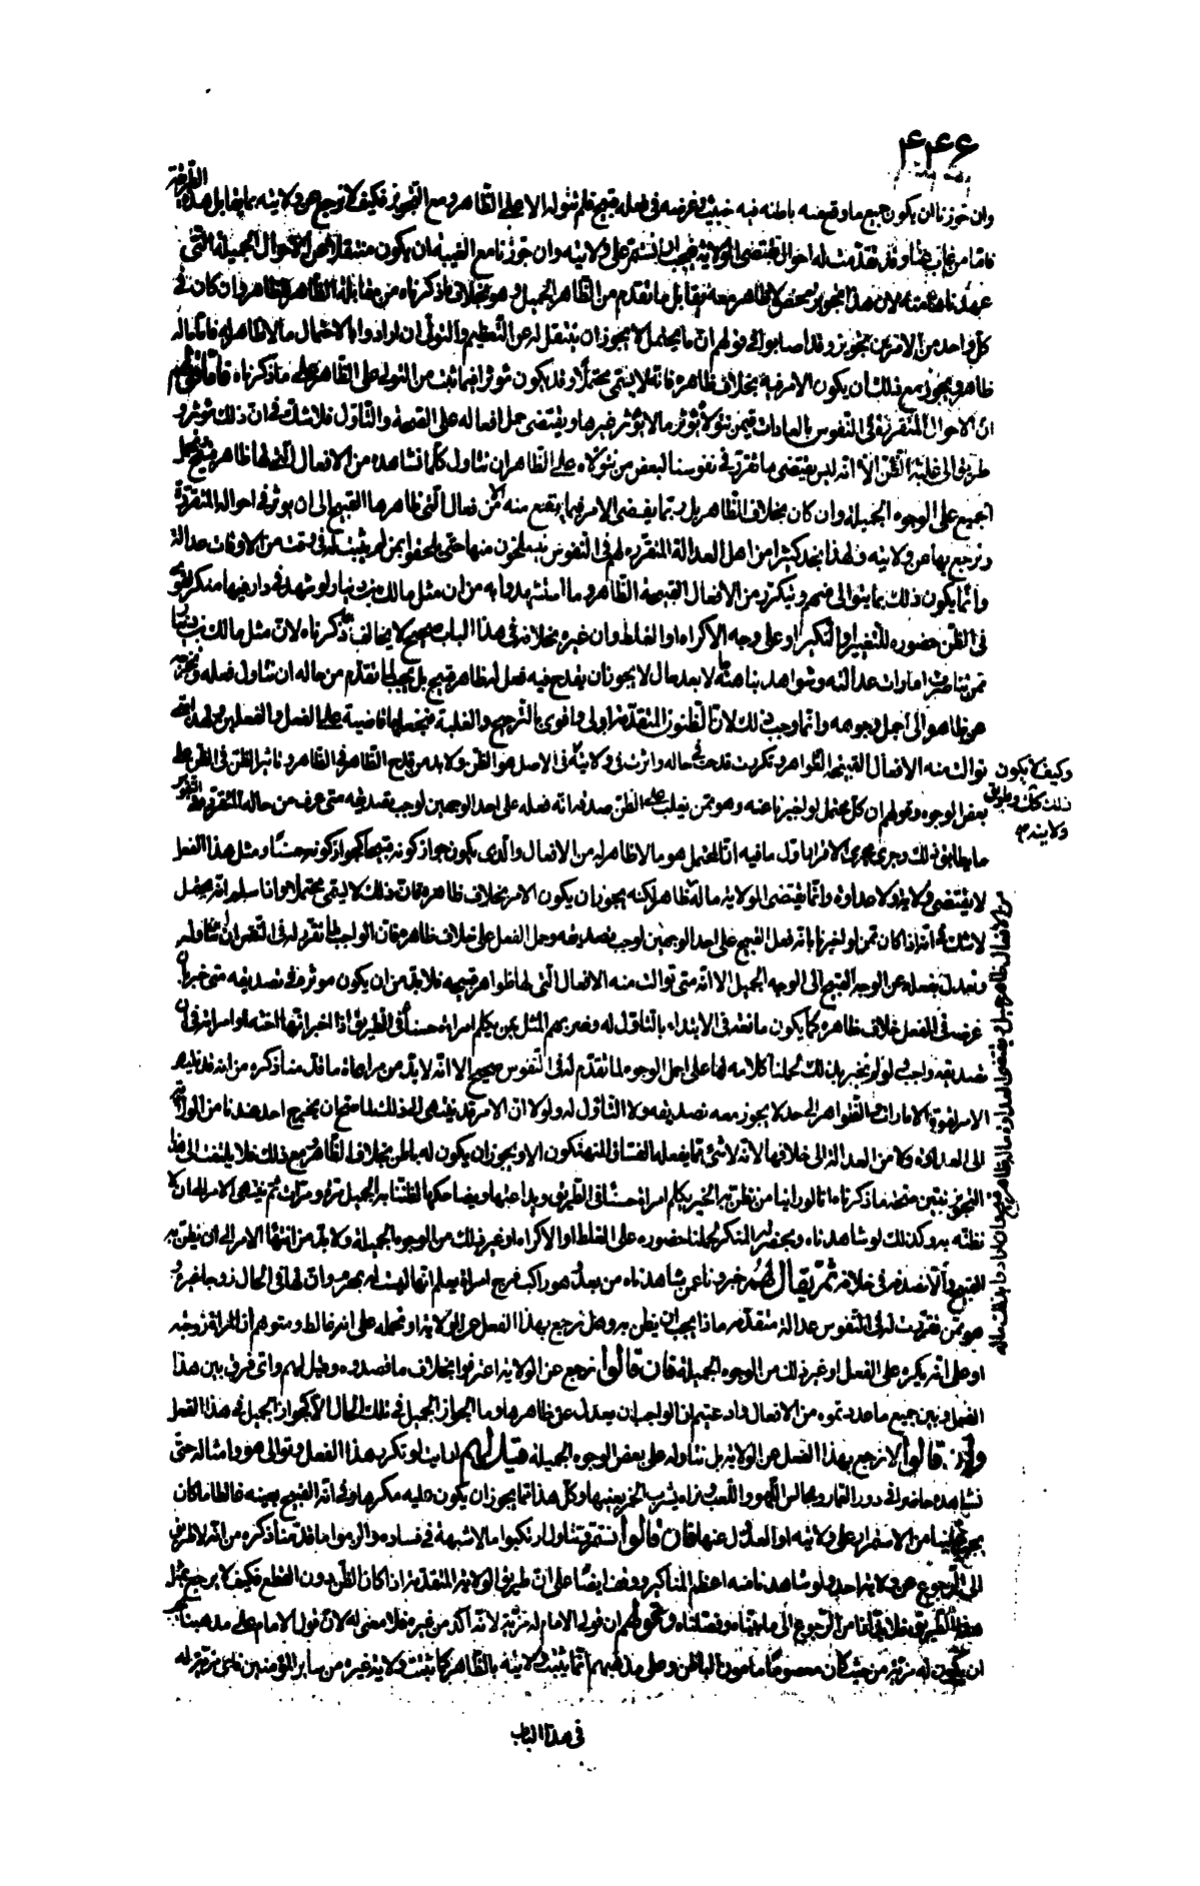 ۴۴۶
وان جوزنا ان يكون جميع ما وقع منه باطنه فيه خبيث وغرضه فى فعله قبيح فلم نتوله الا على الظاهر ومع التجويز فكيف لا نرجع عن ولايته بما يقابل هذه الطريقة
فاما من غاب عنا وقد تقدمت له احوال تقتضى الولاية فيجب ان نستمر على ولايته وان جوزنا مع الغيبة ان يكون منتقلا عن الاحوال الجميلة التى
عهدناها منه لان هذا تجويز محض لا ظاهر معه يقابل ما تقدم من الظاهر الجميل وهو بخلاف ما ذكرناه من مقابلة الظاهر للظاهر وان كان فى
كل واحد من الامرين تجويز وقد اصابوا فى قولهم ان ما يحتمل لا يجوز ان ينتقل له عن التعظيم والتولى ان ارادوا بالاحتمال ما لا ظاهر له فاما ما له
ظاهر ويجوز مع ذلك ان يكون الامر فيه بخلاف ظاهره فانه لا يسمى محتملا وقد يكون مؤثرا فيما ثبت من التولى على الظاهر على ما ذكرناه فاما قولهم
ان الاحوال المتقررة فى النفوس بالعادات فيمن نتولاه تؤثر ما لا يؤثر غيرها ويقتضى حمل افعاله على الصحة والتأول فلا شك فى ان ذلك مؤثر و
طريق الى غلبة الظن الا انه ليس يقتضى ما تقرر فى نفوسنا لبعض من نتولاه على الظاهر ان نتأول كلما نشاهده من الافعال التى لها ظاهر قبيح ونحمل
الجميع على الوجوه الجميلة وان كان بخلاف الظاهر بل ربما يفضى الامر فيما يقع منه من الافعال التى ظاهرها القبيح الى ان يؤثر فى احواله المتقررة
ونرجع بها عن ولايته ولهذا نجد كثيرا من اهل العدالة المتقررة لهم فى النفوس ينسلخون منها حتى يلحقوا بمن لم يثبت له فى وقت من الاوقات عدالة
وانما يكون ذلك بما يتوالى منهم ويتكرر من الافعال القبيحة الظاهر وما استشهدوا به من ان مثل مالك بن دينار لو شهد فى دار فيها منكر لقوى
فى الظن حضوره للتغيير والنكير او على وجه الاكراه او الغلط وان غيره بخلافه فى هذا الباب صحيح لا يخالف ما ذكرناه لان مثل مالك بن دينار
ممن تناصرت امارات عدالته وشواهد نزاهته حالا بعد حال لا يجوز ان يقدح فيه فعل له ظاهر قبيح بل يجب لما تقدم من حاله ان نتأول فعله ونخرجه
عن ظاهره الى اجمل وجوهه وانما وجب ذلك لان الظنون المتقدمة اولى واقوى بالترجيح والغلبة فنجعلها قاضية على الفعل والفعلين ولهذا متى
توالت منه الافعال القبيحة الظواهر وتكررت قدحت فى حاله واثرت فى ولايته
وكيف لا يكون
ذلك كذلك وطريق
ولايته
فى الاصل هو الظن ولا بد من قدح الظاهر فى الظاهر وتأثير الظن فى الظن على
بعض الوجوه وقولهم ان كل محتمل لو اخبرنا عنه وهو ممن يغلب على الظن صدقه انه فعله على احد الوجهين لوجب تصديقه متى عرف من حاله المتقررة فى النفوس
ما يطابق ذلك وجرى مجرى الاقرار فاول ما فيه ان المحتمل هو ما لا ظاهر له من الافعال والذى يكون جواز كونه قبيحا كجواز كونه حسنا ومثل هذا الفعل
لا يقتضى ولاية ولا عداوة وانما يقتضى الولاية ما له
من الافعال ظاهر جميل ويقتضى العداوة ما له ظاهر قبيح
ظاهر لكنه يجوز ان يكون الامر بخلاف ظاهره فان ذلك لا يسمى محتملا
لا شك فى انه اذا كان ممن لو اخبرنا بانه فعل القبيح على احد الوجهين لوجب تصديقه وحمل الفعل على خلاف ظاهره فان الواجب لما تقرر له فى النفوس ان نتأول له
ونعدل بفعله عن الوجه القبيح الى الوجه الجميل الا انه متى توالت منه الافعال التى لها ظواهر قبيحة فلا بد من ان يكون مؤثرة فى تصديقه متى خبرنا ان
غرضه فى الفعل خلاف ظاهره كما يكون مانعة فى الابتداء بالتأول له وضربهم المثل بمن يكلم امراة حسناء فى الطريق اذا اخبر انها اخته او امراته فى ان
تصديقه واجب ولو لم يخبر بذلك لحملنا كلامه لها على اجمل الوجوه لما تقدم له فى النفوس صحيح الا انه لا بد من مراعاة ما قدمنا ذكره من انه قد ينتهى
الامر لقوة الامارات والظواهر الى حد لا يجوز معه تصديقه ولا التأول له ولولا ان الامر قد ينتهى الى ذلك لما صح ان يخرج احد عندنا من الولاية
الى العداوة ولا من العدالة الى خلافها لانه لا شئ مما يفعله الفساق المتهتكون الا ويجوز ان يكون له باطن بخلاف الظاهر ومع ذلك فلا يلتفت الى هذا
التجويز يبين صحة ما ذكرناه انا لو راينا من نظن به الخير يكلم امراة حسناء فى الطريق ويداعبها ويضاحكها لظننا به الجميل مرة ومرات ثم ينتهى الامر الى ان لا
نظنه به وكذلك لو شاهدناه وبحضرته المنكر لحملنا حضوره على الغلط او الاكراه او غير ذلك من الوجوه الجميلة ولا بد من انتهاء الامر الى ان نظن به
القبيح ولا نصدقه فى خلافه ثم يقال لهم خبرونا عمن شاهدناه من بعد وهو راكب فرج امراة يعلم انها ليست له بمحرم وان لها فى الحال زوجا غيره و
هو ممن تقررت له فى النفوس عدالة متقدمة ماذا يجب ان يظن به وهل نرجع بهذا الفعل عن الولاية او نحمله على انه غالط ومتوهم ان المراة زوجته
او على انه مكره على الفعل او غير ذلك من الوجوه الجميلة فان قالوا نرجع عن الولاية اعترفوا بخلاف ما قصدوه وقيل لهم واى فرق بين هذا
الفعل وبين جميع ما عددتموه من الافعال وادعيتم ان الواجب ان يعدل عن ظاهرها وما جواز الجميل فى ذلك الحال الا كجواز الجميل فى هذا الفعل
وان قالوا لا نرجع بهذا الفعل عن الولاية بل نتأوله على بعض الوجوه الجميلة قيل لهم ارايتم لو تكرر هذا الفعل وتوالى هو وامثاله حتى
نشاهده حاضرا فى دور القمار ومجالس اللهو واللعب ونراه يشرب الخمر بعينها وكل هذا مما يجوز ان يكون عليه مكرها وفى انه القبيح بعينه غالطا ما كان
يجب علينا من الاستمرار على ولايته او العدول عنها فان قالوا نستمر ونتأول ارتكبوا ما لا شبهة فى فساده والزموا ما قدمنا ذكره من انه لا طريق
الى الرجوع عن ولاية احد ولو شاهدنا منه اعظم المناكير ووقف ايضا على ان طريق الولاية المتقدمة اذا كان الظن دون القطع فكيف لا يرجع بمثل
هذه الطريقة فلا بد لنا من الرجوع الى ما بيناه وفصلناه وقولهم ان قول الامام له مزية لانه آكد من غيره فلا معنى له لان قول الامام على مذهبنا يجب
ان يكون له مزية من حيث كان معصوما مأمون الباطن وعلى مذهبهم انما يثبت ولايته بالظاهر كما يثبت ولاية غيره من ساير المؤمنين فاى مزية له
فى هذا الباب